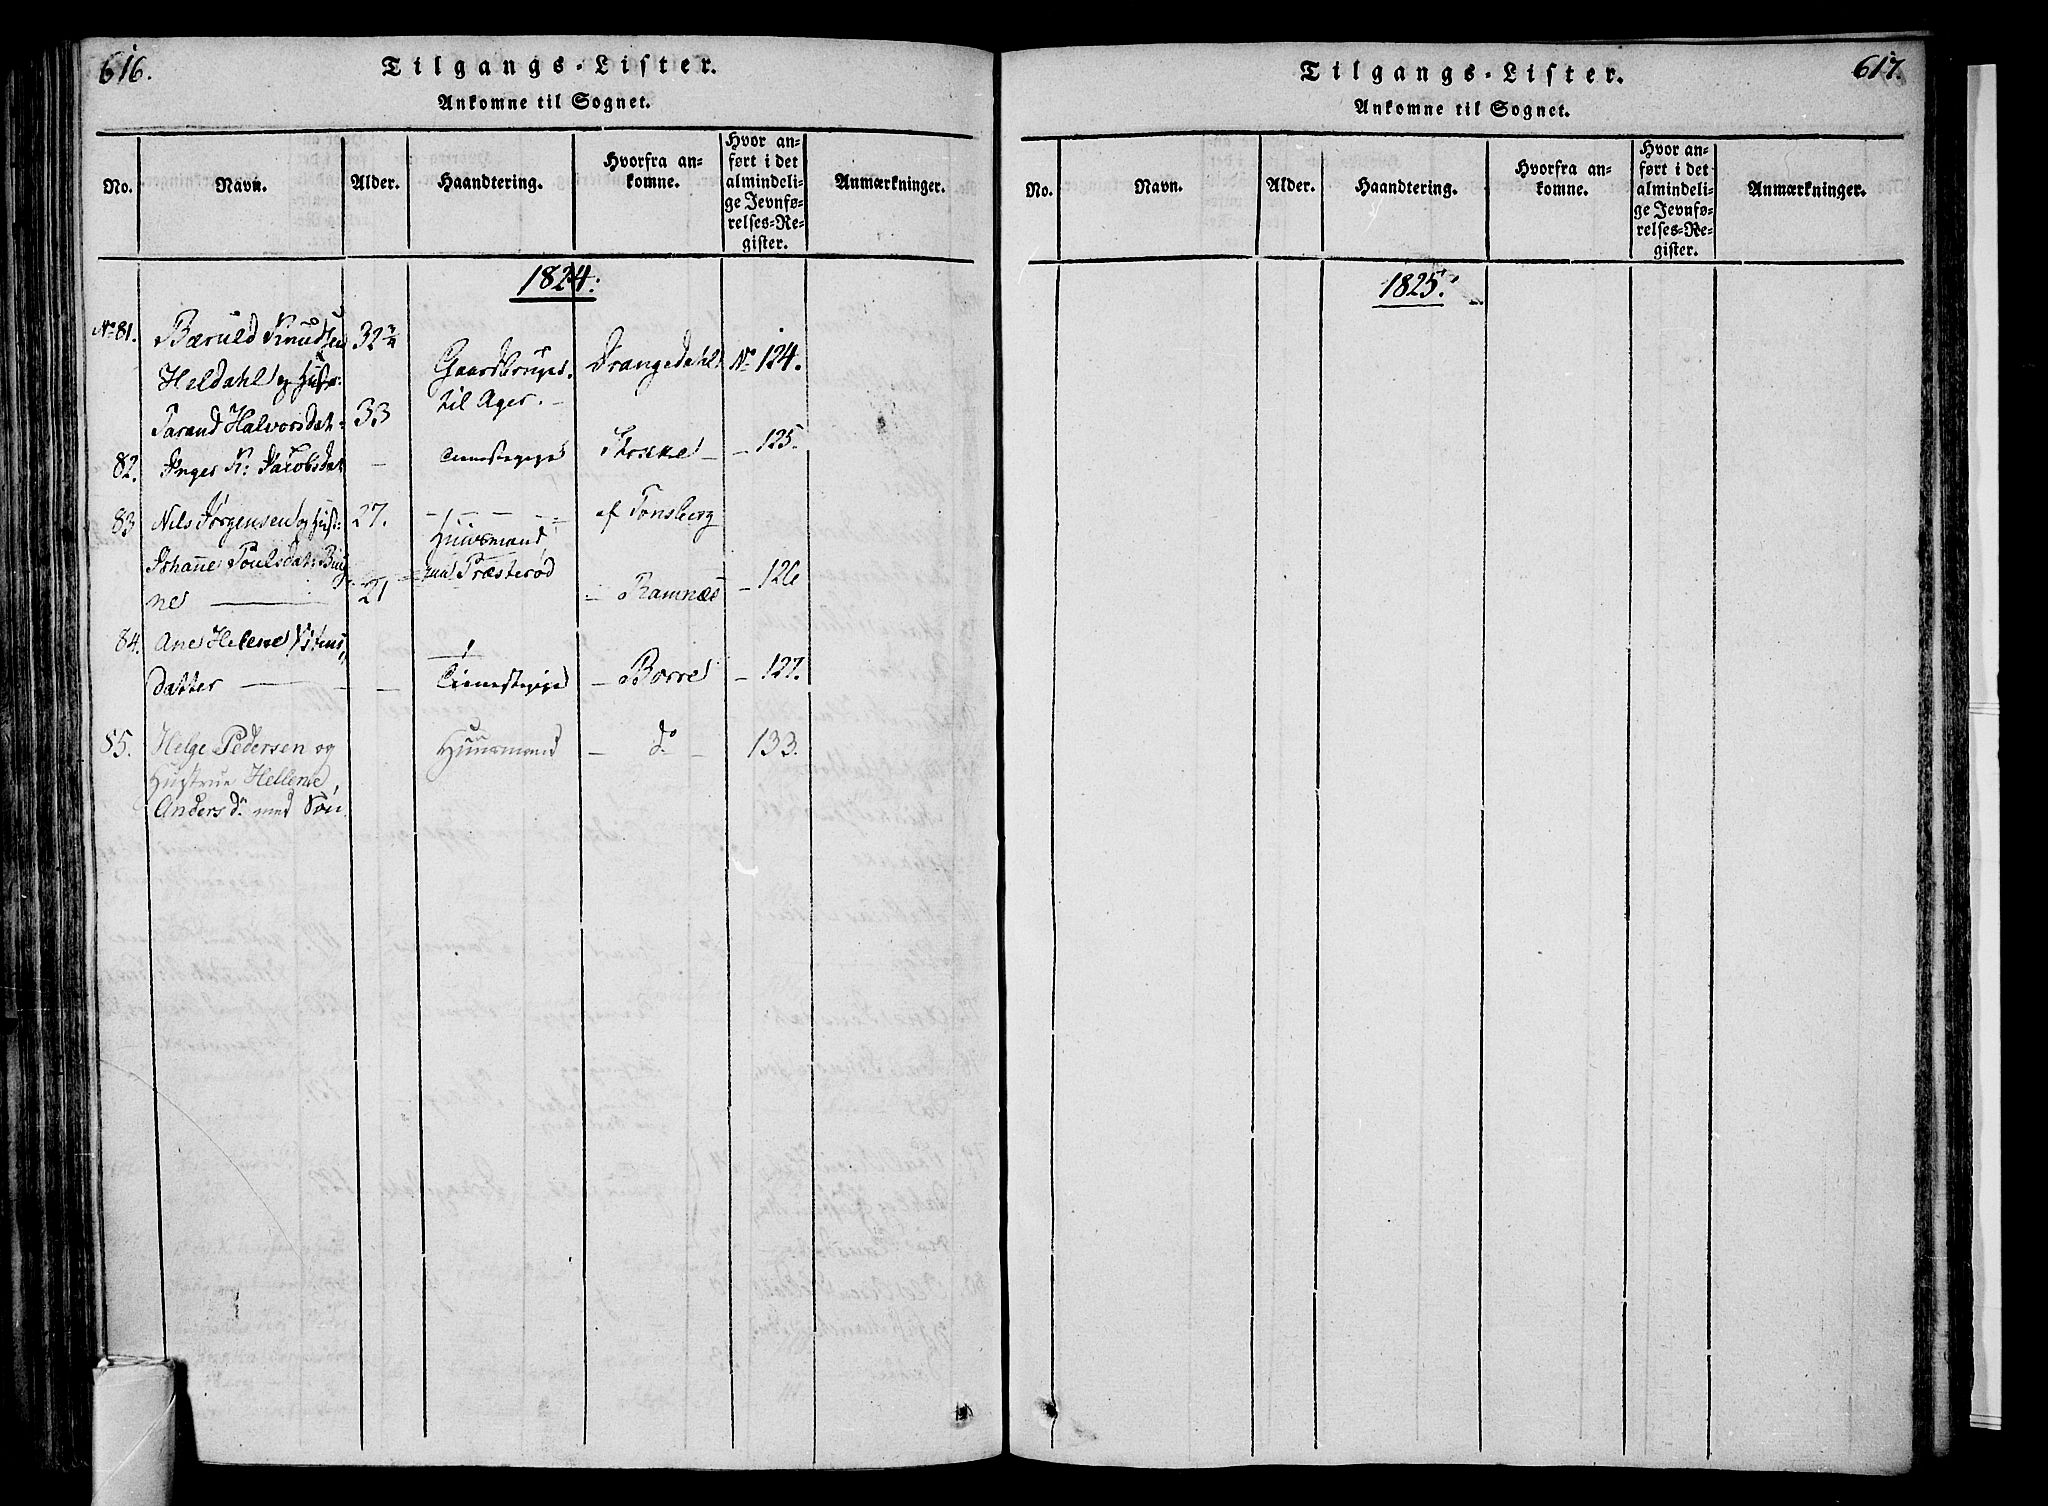 616.
Tilgangs-Lister.
Ankomne til Sognet.
No.
Navn.
Alder.
Haandtering.
Hvorfra an-
komne.
Hvor an-
ført i det
almindeli-
ge Jevnfø-
relses-Re-
gister.
Anmærkninger.
1824.
No 81. Bæruld Knudsen 32
Heldahl og Hustr: Gaardbruger Drangedahl No 124.
til Ager.
Tarand Halvorsdat: 33
82. Inger K: Jacobsdat - Tienestepige Stokke - 125.
83 Nils Jørgensen og Hust: 27. af Tønsberg
Huusmand
Johanne Poulsdat: Bug
paa Præsterød
ne 21 - Ramnæs - 126
84. Ane Helene
datter - Tienestepige - Borre - 127.
85. Helge Pedersen og Huusmand - do - 133.
Hustrue Hellene
Andersd. med Søn
617.
Tilgangs-Lister.
Ankomne til Sognet.
No.
Navn.
Alder.
Haandtering.
Hvorfra an-
komne.
Hvor an-
ført i det
almindeli-
ge Jevnfø-
relses-Re-
gister.
Anmærkninger.
1825.